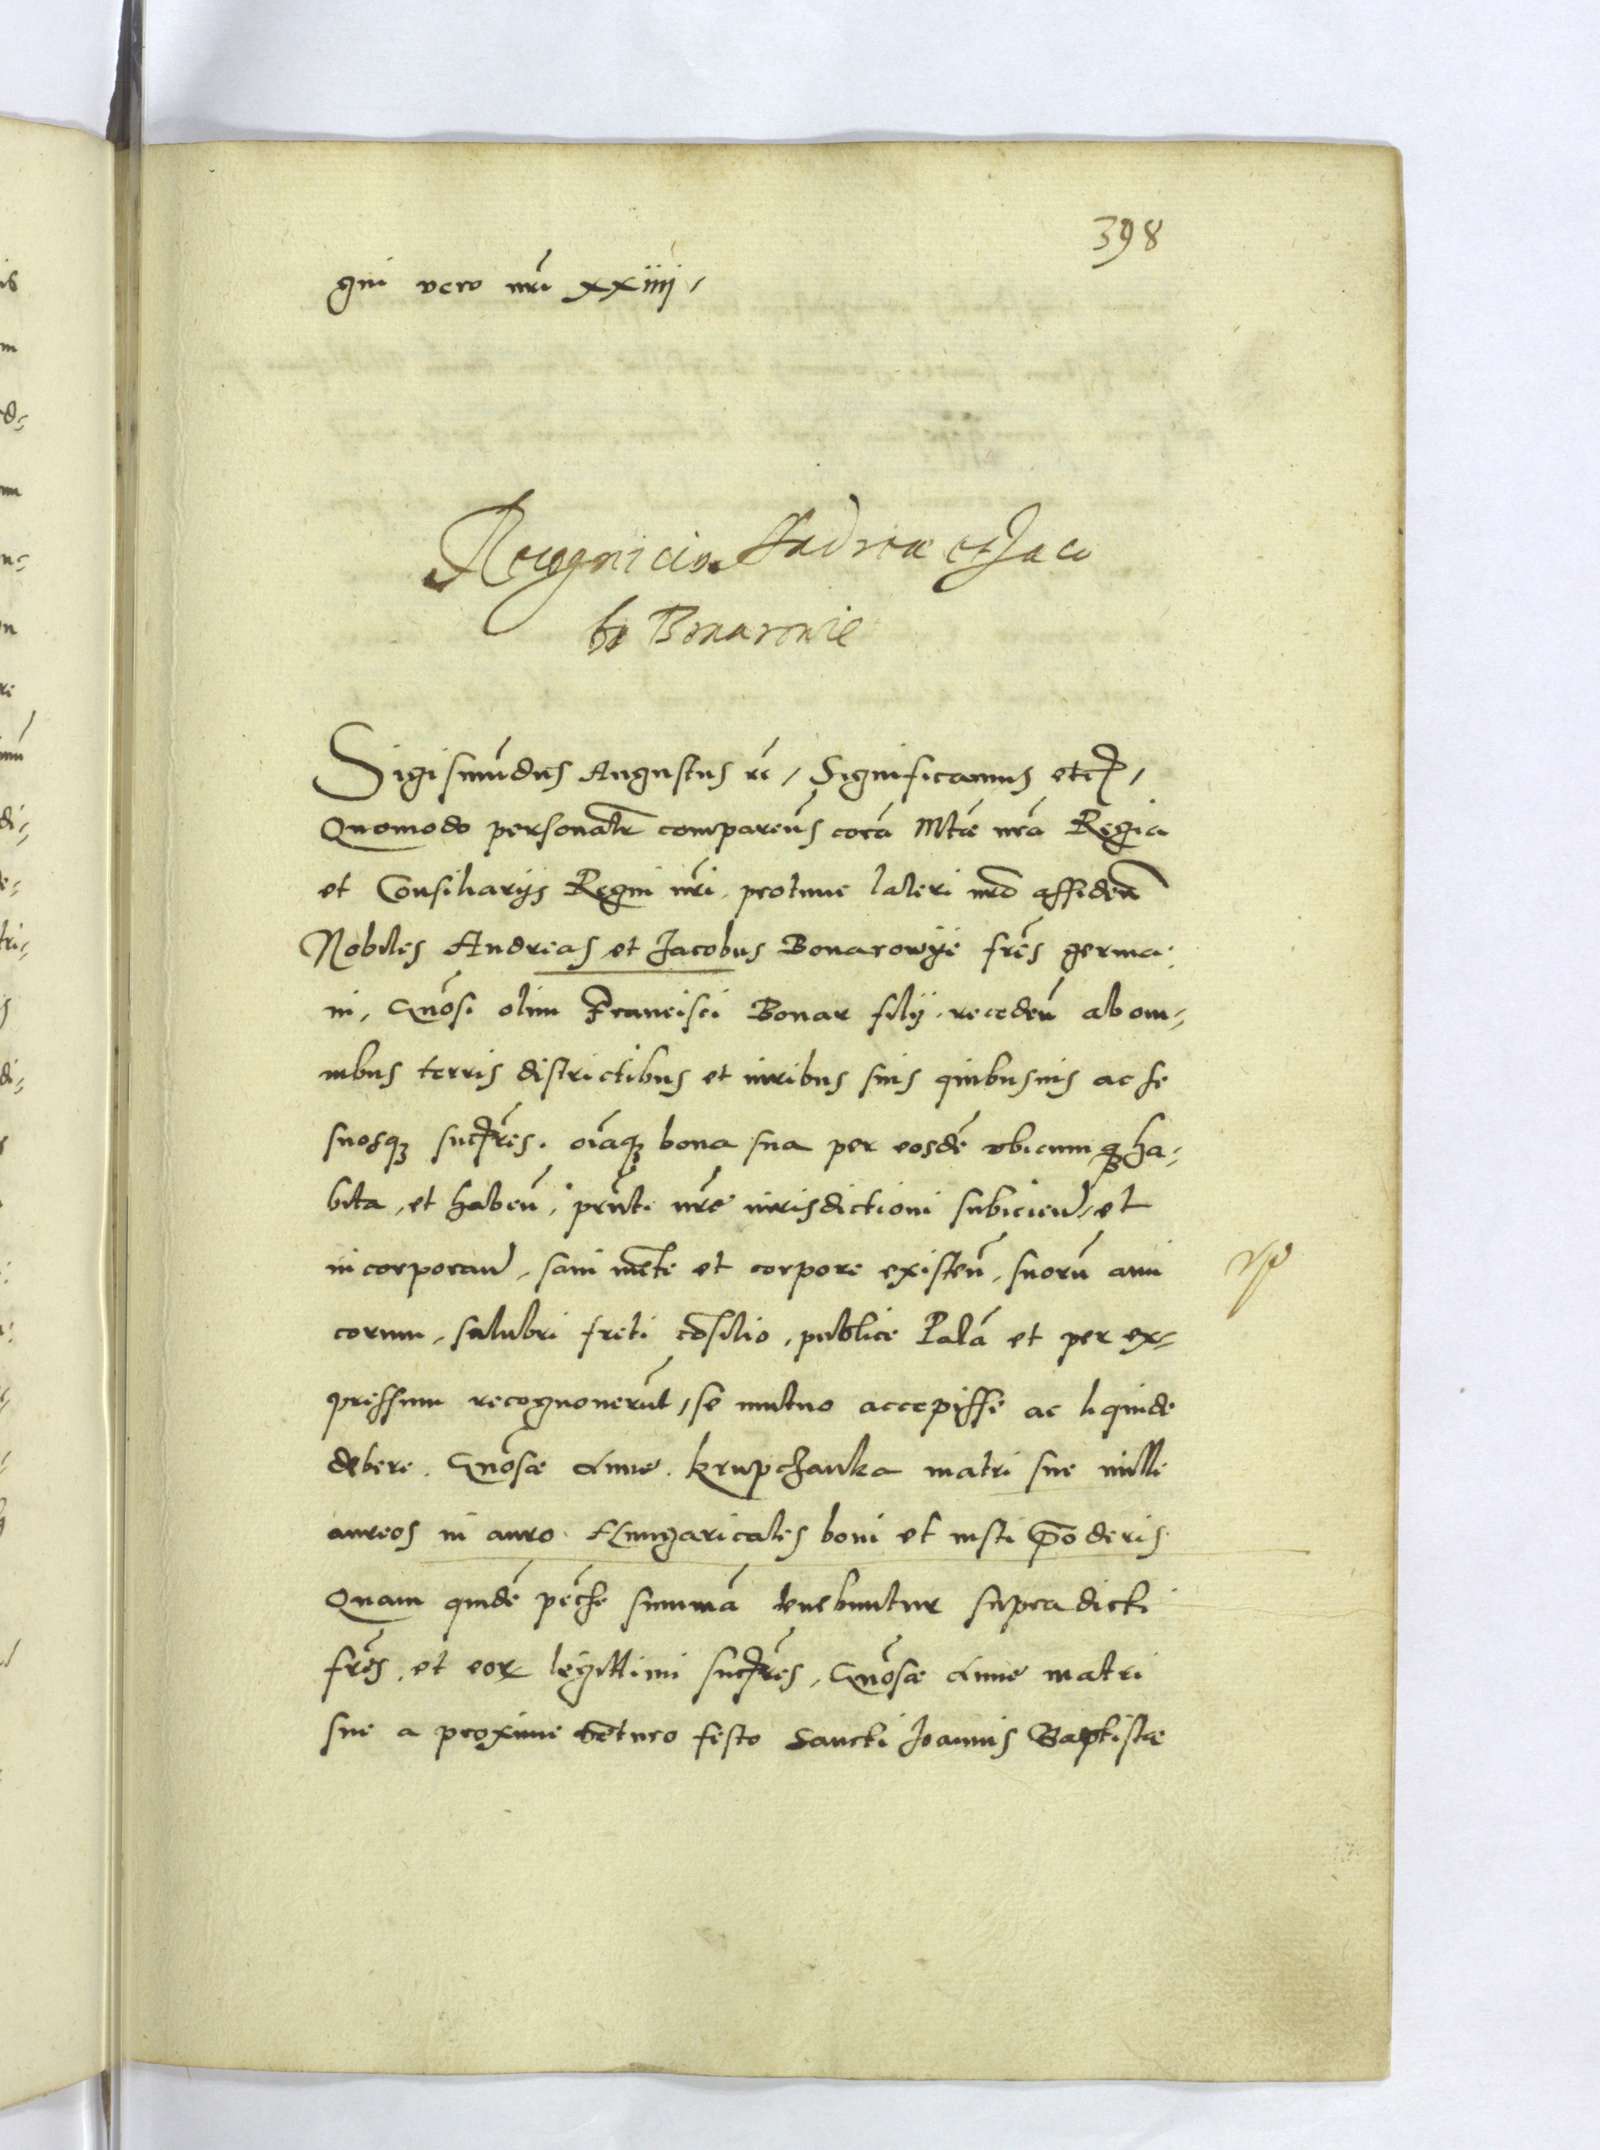 398
gni vero nr̃i xxiiij,
Recognicio Andreæ et Jaco
bo Bonarowie
Sigismũdus Augustus rc̃, Significamus etc,
Quomodo personalr̃ compareñs corã Mtæ nrã Regia
et Consiliarijs Regni nr̃i protunc lateri nr̃o assideñ
Nobiles Andreas et Jacobus Bonarowÿe fr̃es germa
ni, Gnõsi olim Francisci Bonar filij, recedeñ ab om-
nibus terris districtibus et iuribus suis quibusuis ac se
suosq; succ̃res. oĩaq; bona sua per eosdẽ vbicumq; ha-
bita, et habeñ, prñti nr̃e iurisdictioni subicieñ, et
incorporañ, sani mẽte et corpore existeñ, suorũ ami
corum, salubri freti cõsilio, publice Palã et per ex-
pressum recognouerũt, se mutuo accepisse ac liquide
debere. Gnõsæ Anne. Krupchanka matri sue mille
aureos in auro Hungaricales boni et iusti põderis
Quam quidẽ pẽc̃he summã tenebuntur supradicti
fr̃es, et eor legittimi succ̃res, Gnõsæ Anne matri
sue a proxime vẽturo festo Sancti Joannis Baptistæ